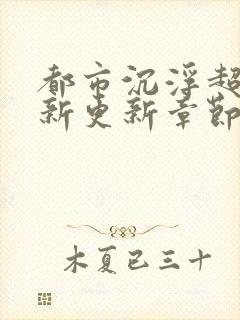 都市沉浮超
新更新章节
木夏已三十